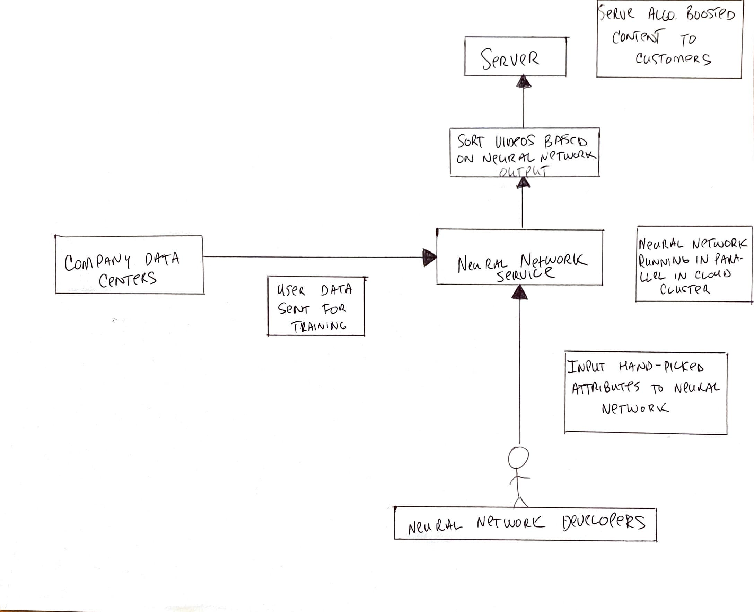 SERVE ALGO. BOOSTED
CONTENT TO
CUSTOMERS
SERVER
SORT VIDEOS BASED
ON NEURAL NETWORK
OUTPUT
COMPANY DATA
CENTERS
NEURAL NETWORK
SERVICE
NEURAL NETWORK
RUNNING IN PARA-
LLEL IN CLOUD
CLUSTER
USER DATA
SENT FOR
TRAINING
INPUT HAND-PICKED
ATTRIBUTES TO NEURAL
NETWORK
NEURAL NETWORK DEVELOPERS